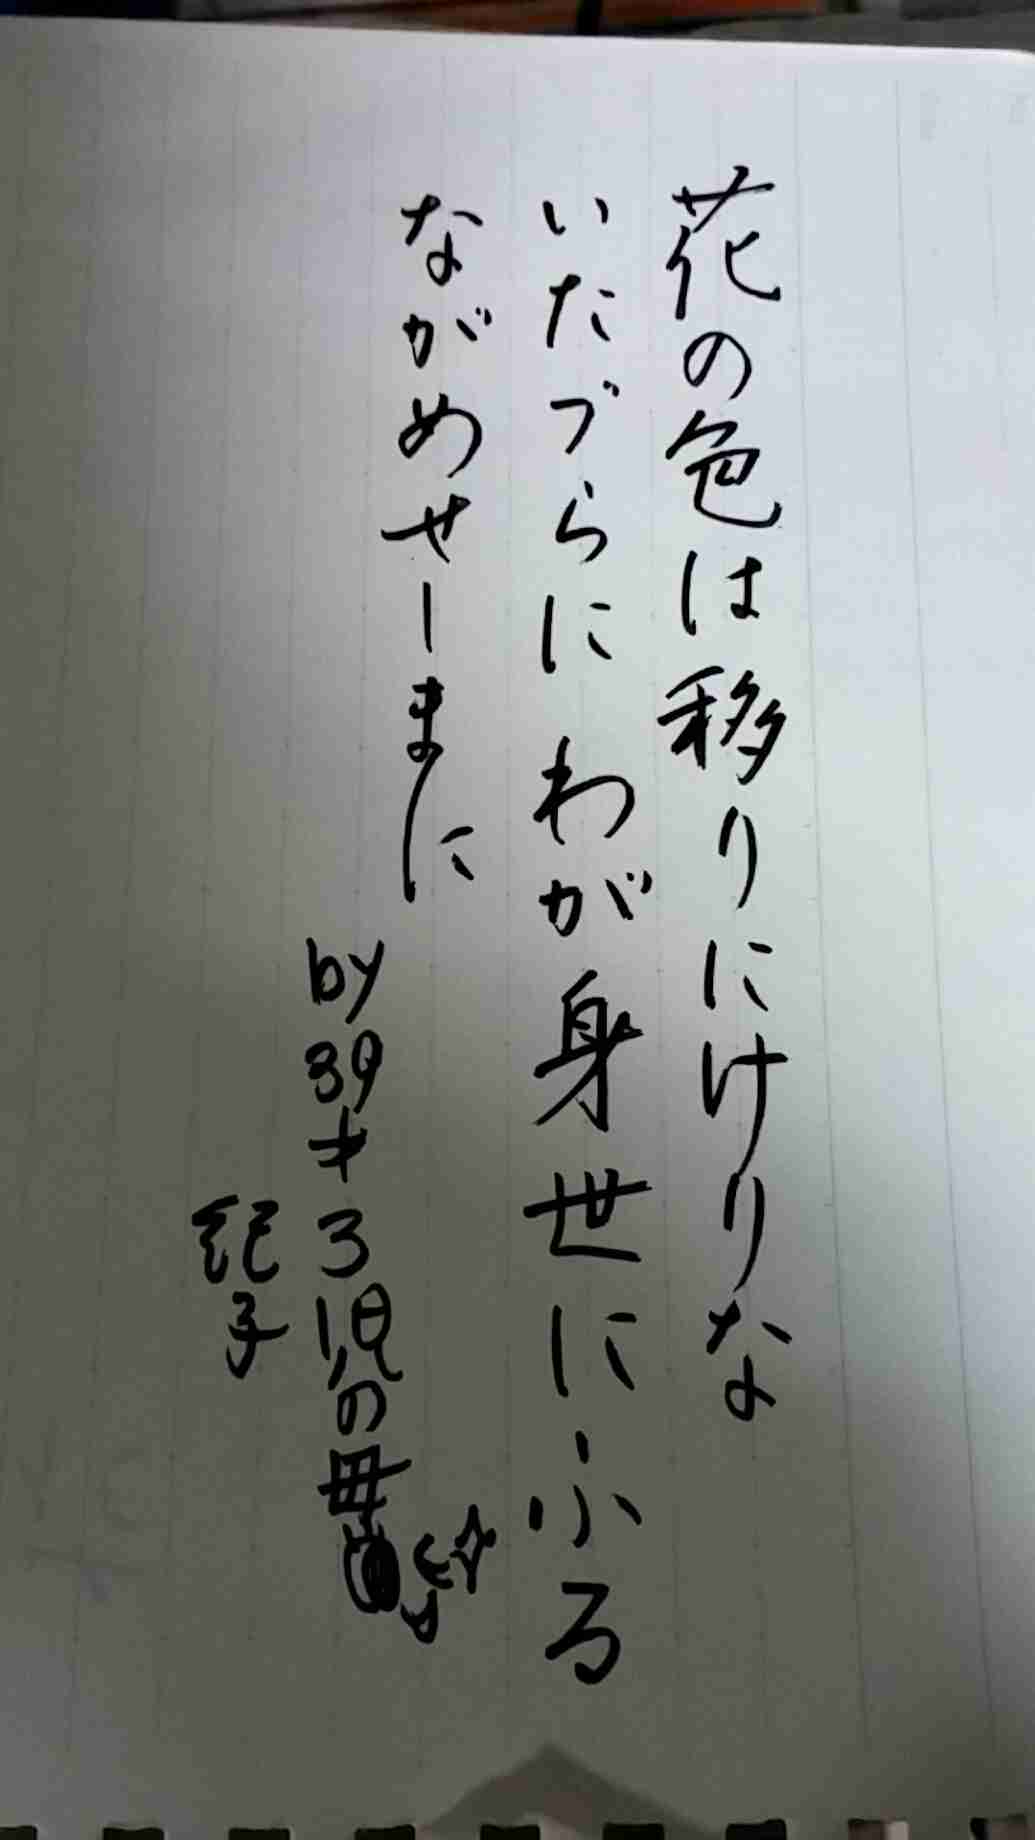 花の色は移りにけりな
いたづらにわが身世にふる
ながめせしまに
by 39才3児の母
紀子